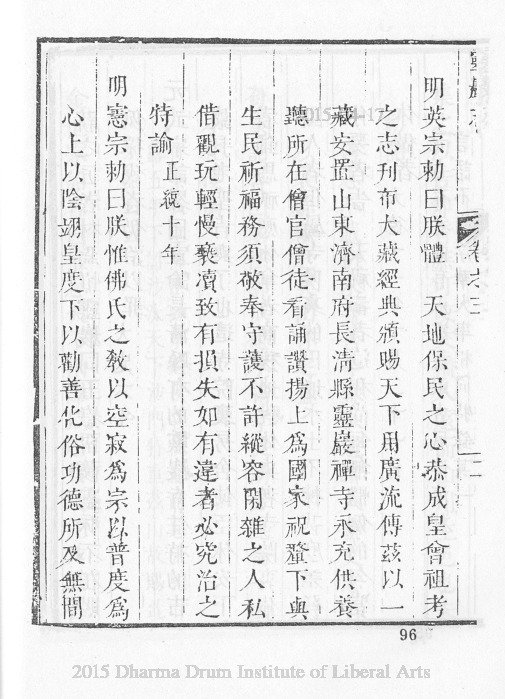 明英宗勅曰朕體　天地保民之心恭成皇曾祖考
之志刋布大藏經典頒賜天下用廣流傳茲以一
藏安置山東濟南府長清縣靈巖禪寺永充供養
聽所在僧官僧徒看誦讚揚上爲國家祝釐下與
生民祈福務須敬奉守護不許縱容閑雜之人私
借觀玩輕慢褻瀆致有損失如有違者必究治之
特諭正統十年
明憲宗勅曰朕惟佛氏之教以空寂爲宗以普度爲
心上以陰翊皇度下以勸善化俗功德所及無間
卷之三
96
2015 Dharma Drum Institute of Liberal Arts